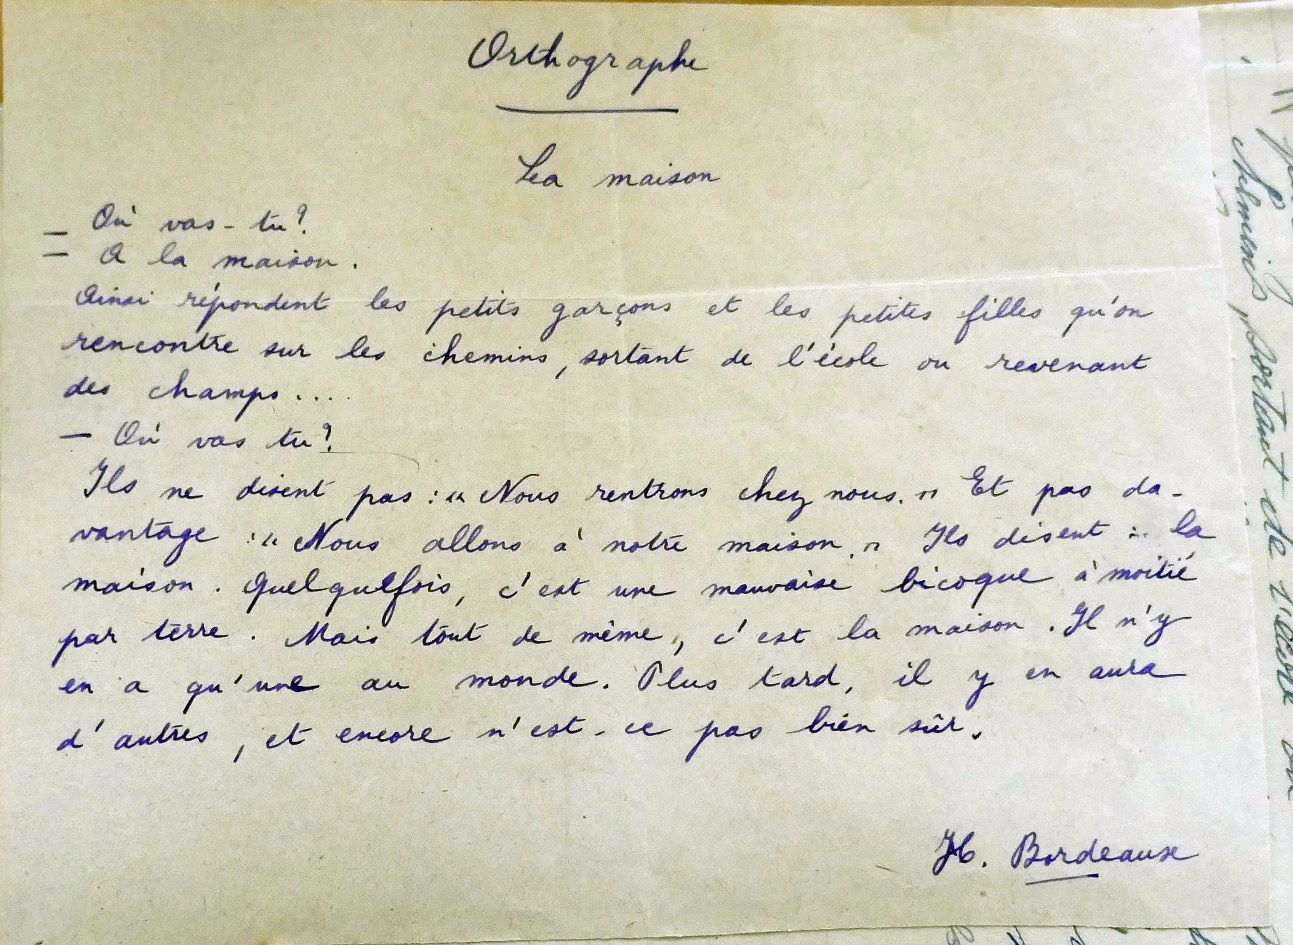 Orthographe
La maison
— Où vas-tu?
— A la maison.
Ainsi répondent les petits garçons et les petites filles qu'on
rencontre sur les chemins, sortant de l'école ou revenant
des champs....
— Où vas tu?
Ils ne disent pas : " Nous rentrons chez nous. " Et pas da-
vantage : " Nous allons à notre maison. " Ils disent : la
maison. Quelquefois, c'est une mauvaise bicoque à moitié
par terre. Mais tout de même, c'est la maison. Il n'y
en a qu'une au monde. Plus tard, il y en aura
d'autres, et encore n'est-ce pas bien sûr.
H. Bordeaux
sortant de